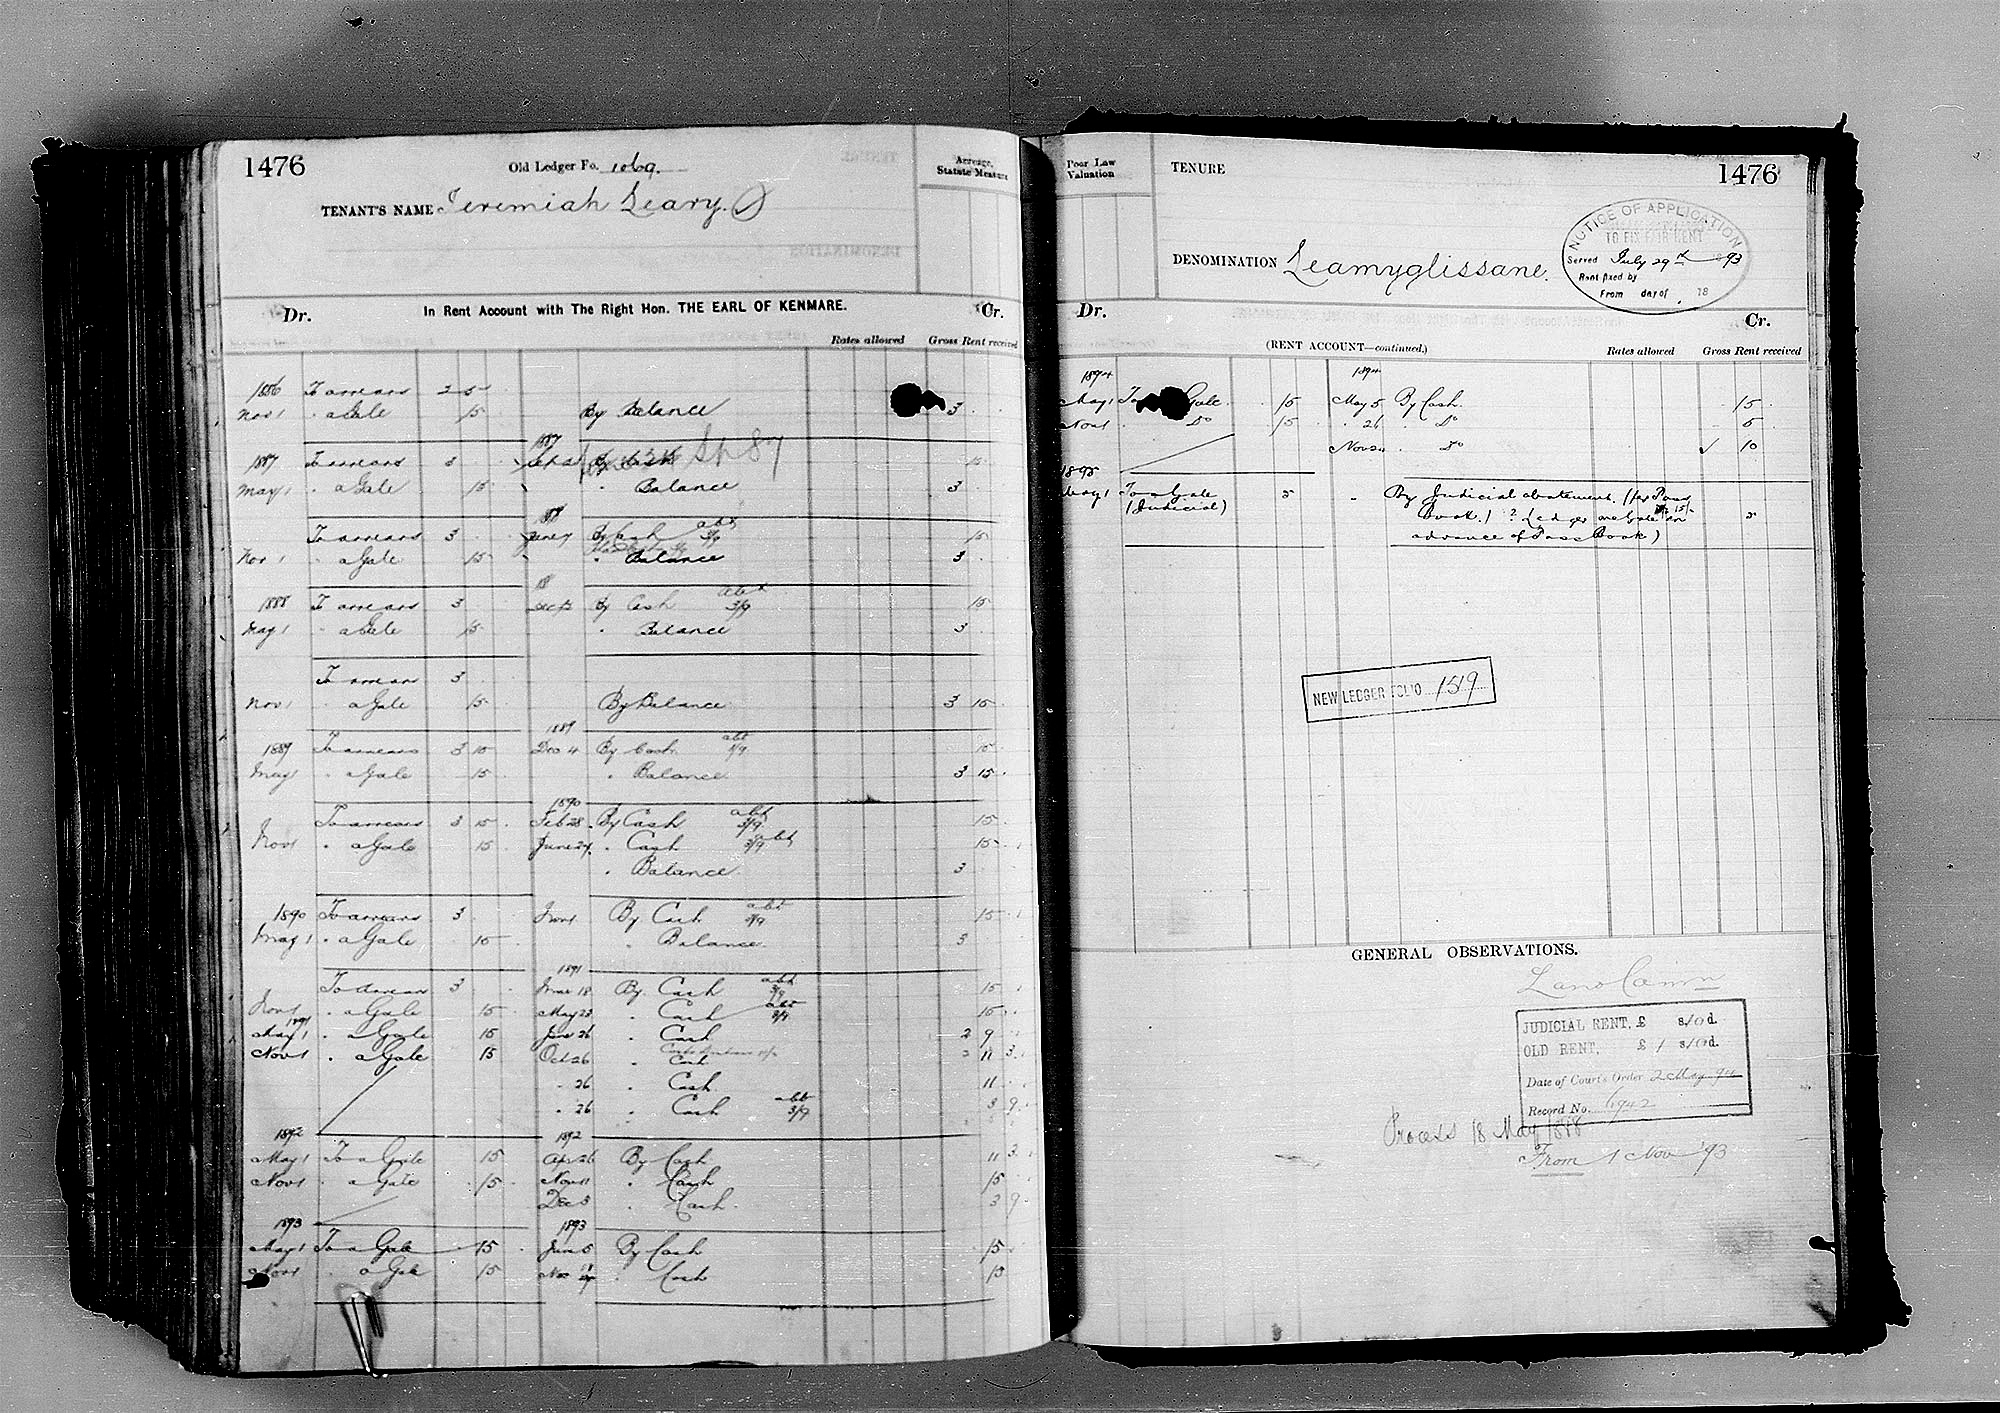 1476
Old Ledger Fo. 1069.
Acreage, Statute Measure
TENANT'S NAME Jeremiah Leary.
In Rent Account with The Right Hon. THE EARL OF KENMARE.
Dr. Cr.
Rates allowed Gross Rent received
1886 To arrears 2 5
Nov 1 " a Gale 15 By Balance 3
1887
1887 To arrears 3 By Cash 15
Sp 87
May 1 " a Gale 15 " Balance 3
To arrears 3 June 7 By Cash abt 3/9 15
Nov 1 " a Gale 15 " Balance 3
1888 To arrears 3 By Cash abt 3/9 15
May 1 " a Gale 15 " Balance 3
To arrears 3
Nov 1 " a Gale 15 By Balance 3 15
1889
1889 To arrears 3 15 Dec 4 By Cash abt 3/9 15
May 1 " a Gale 15 " Balance 3 15
1890
To arrears 3 15 Feb 28 By Cash abt 3/9 15
Nov 1 " a Gale 15 June 24 " Cash abt 3/9 15
" Balance 3
1890 To arrears 3 Nov 1 By Cash abt 3/9 15
May 1 " a Gale 15 " Balance 3
1891
To arrears 3 Mar 18 By Cash abt 3/9 15
Nov 1 " a Gale 15 May 23 " Cash abt 3/9 15
1891
May 1 " a Gale 15 June 26 " Cash 2 9
Nov 1 " a Gale 15 Oct 26 " Cash 2 11 3
" 26 " Cash 11
" 26 " Cash abt 3/9 3 9
1892 1892
May 1 To a Gale 15 Apr 26 By Cash 11 3
Nov 1 " a Gale 15 Nov 11 " Cash 15
Dec 3 " Cash 3 9
1893 1893
May 1 To a Gale 15 June 5 By Cash 15
Nov 1 " a Gale 15 Nov " Cash 15
Poor Law Valuation
TENURE
1476
DENOMINATION Leamyglissane.
NOTICE OF APPLICATION
TO FIX FAIR RENT
Served July 29th 93
Rent fixed by
From day of 18
Dr. Cr.
(RENT ACCOUNT—continued.)
Rates allowed Gross Rent received
1894 1894
May 1 To a Gale 15 May 5 By Cash 15
Nov 1 " Do 15 " 26 " Do 5
Nov 24 " Do 10
1895
May 1 To a Gale 5 " By Judicial abatement. (per Pass
(Judicial) Book.) ? Ledger one Gale in 5
advance of Pass Book)
NEW LEDGER FOLIO 1519
GENERAL OBSERVATIONS.
Land Comm
JUDICIAL RENT, £ s/10 d.
OLD RENT, £ 1 s/10 d.
Date of Court's Order 2 May 94
Record No. 6942
Process 18 May 1888
From 1 Nov '93